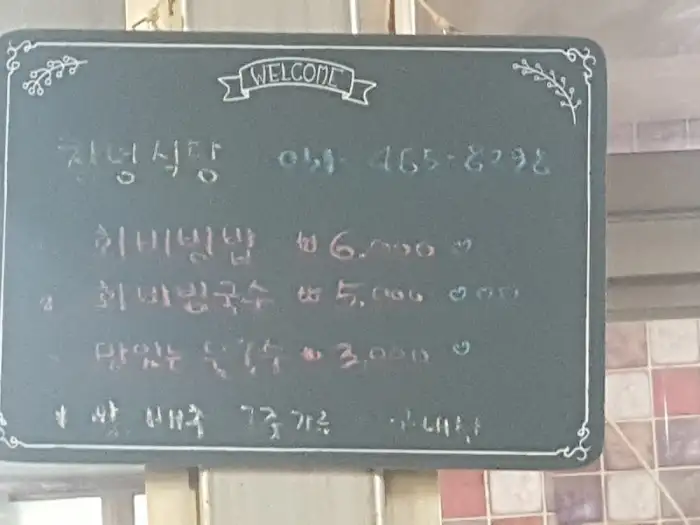 WELCOME
창녕식당 051-465-8298
회비빔밥 ₩6.000♡
회비빔국수 ₩5.000♡
맛있는 ₩3.000♡
쌀 배추 고춧가루 국내산